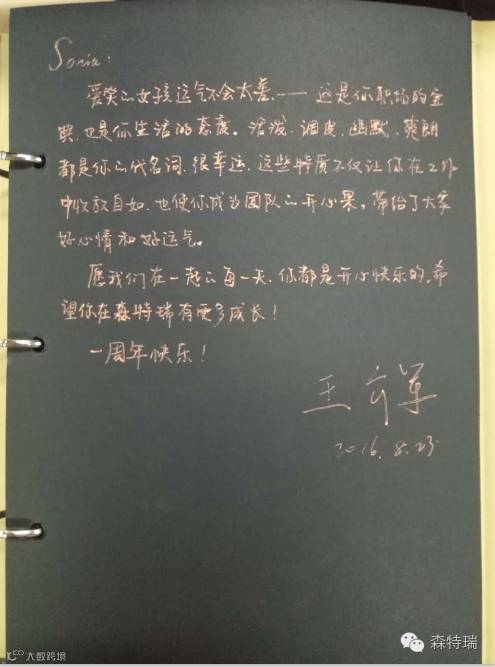 Sonia:
爱笑的女孩运气不会太差——这是你职场的宝
典,也是你生活的态度。活泼、调皮、幽默、爽朗
都是你的代名词,很幸运,这些特质不仅让你在工作
中收放自如,也使你成为团队的开心果,带给了大家
好心情和好运气。
愿我们在一起的每一天,你都是开心快乐的,希
望你在森特瑞有更多成长!
一周年快乐!
王
2016.8.23
森特瑞
大数跨境